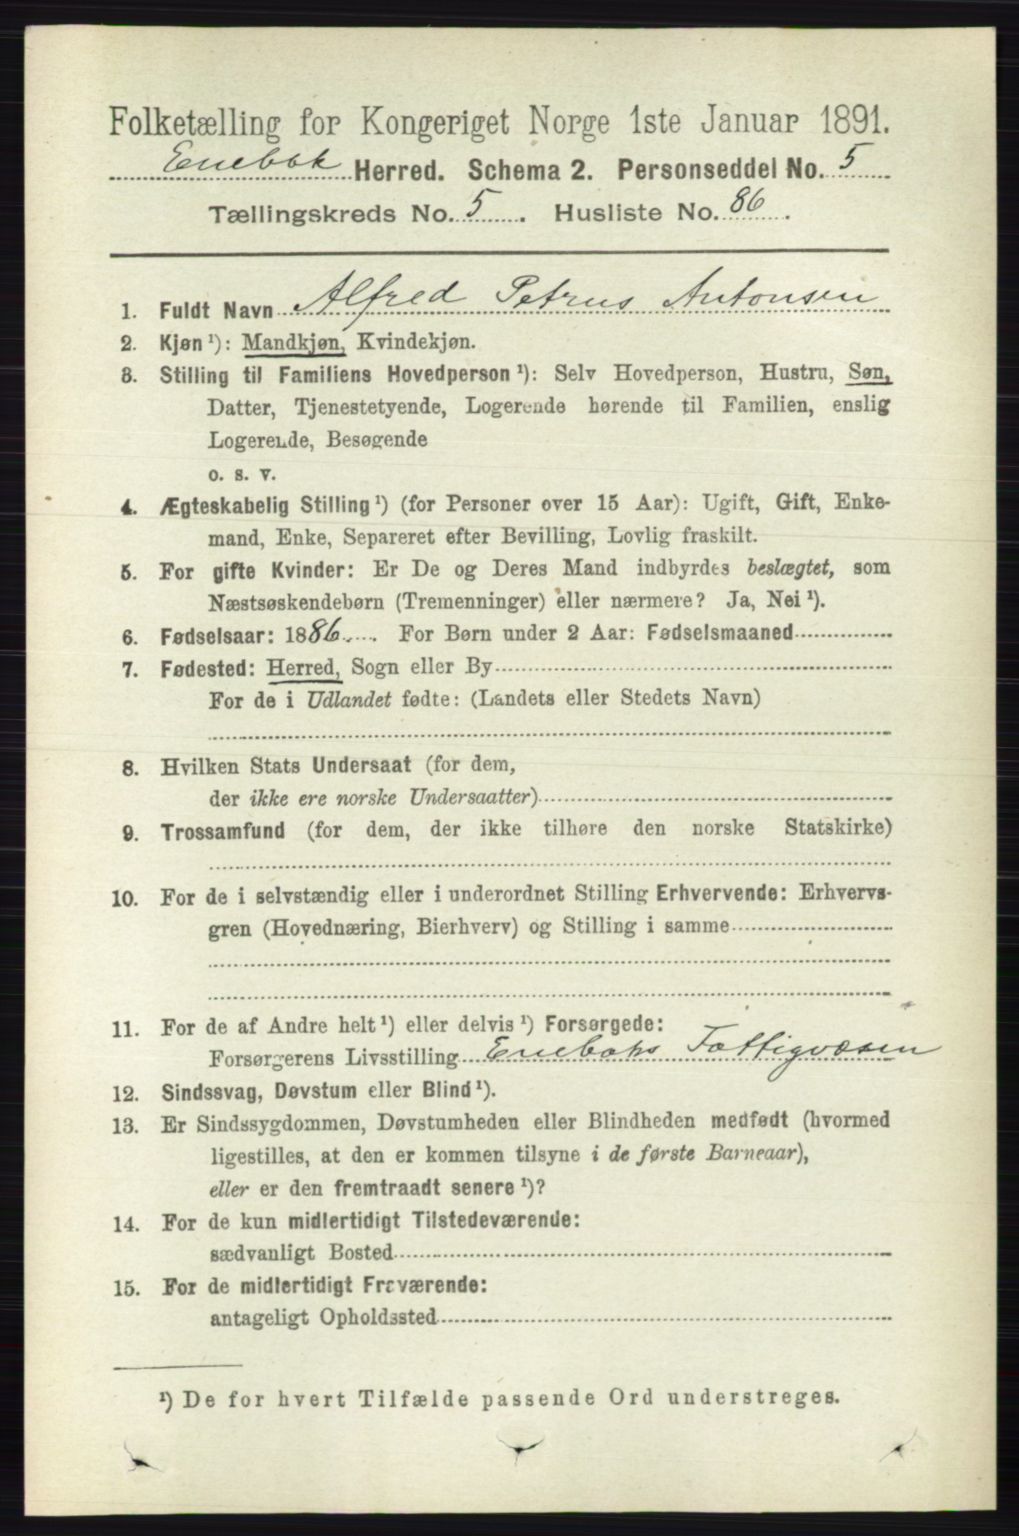 Folketælling for Kongeriget Norge 1ste Januar 1891.
Enebak Herred. Schema 2. Personseddel No. 5
Tællingskreds No. 5. Husliste No. 86.
1. Fuldt Navn Alfred Petrus Antonsen
2. Kjøn ¹): Mandkjøn, Kvindekjøn.
3. Stilling til Familiens Hovedperson ¹): Selv Hovedperson, Hustru, Søn,
Datter, Tjenestetyende, Logerende hørende til Familien, enslig
Logerende, Besøgende
o. s. v.
4. Ægteskabelig Stilling ¹) (for Personer over 15 Aar): Ugift, Gift, Enke-
mand, Enke, Separeret efter Bevilling, Lovlig fraskilt.
5. For gifte Kvinder: Er De og Deres Mand indbyrdes beslægtet, som
Næstsøskendebørn (Tremenninger) eller nærmere? Ja, Nei ¹).
6. Fødselsaar: 1886. For Børn under 2 Aar: Fødselsmaaned
7. Fødested: Herred, Sogn eller By
For de i Udlandet fødte: (Landets eller Stedets Navn)
8. Hvilken Stats Undersaat (for dem,
der ikke ere norske Undersaatter)
9. Trossamfund (for dem, der ikke tilhøre den norske Statskirke)
10. For de i selvstændig eller i underordnet Stilling Erhvervende: Erhvervs-
gren (Hovednæring, Bierhverv) og Stilling i samme
11. For de af Andre helt ¹) eller delvis ¹) Forsørgede:
Forsørgerens Livsstilling Enebaks Fattigvæsen
12. Sindssvag, Døvstum eller Blind ¹).
13. Er Sindssygdommen, Døvstumheden eller Blindheden medfødt (hvormed
ligestilles, at den er kommen tilsyne i de første Barneaar),
eller er den fremtraadt senere ¹)?
14. For de kun midlertidigt Tilstedeværende:
sædvanligt Bosted
15. For de midlertidigt Fraværende:
antageligt Opholdssted
¹) De for hvert Tilfælde passende Ord understreges.